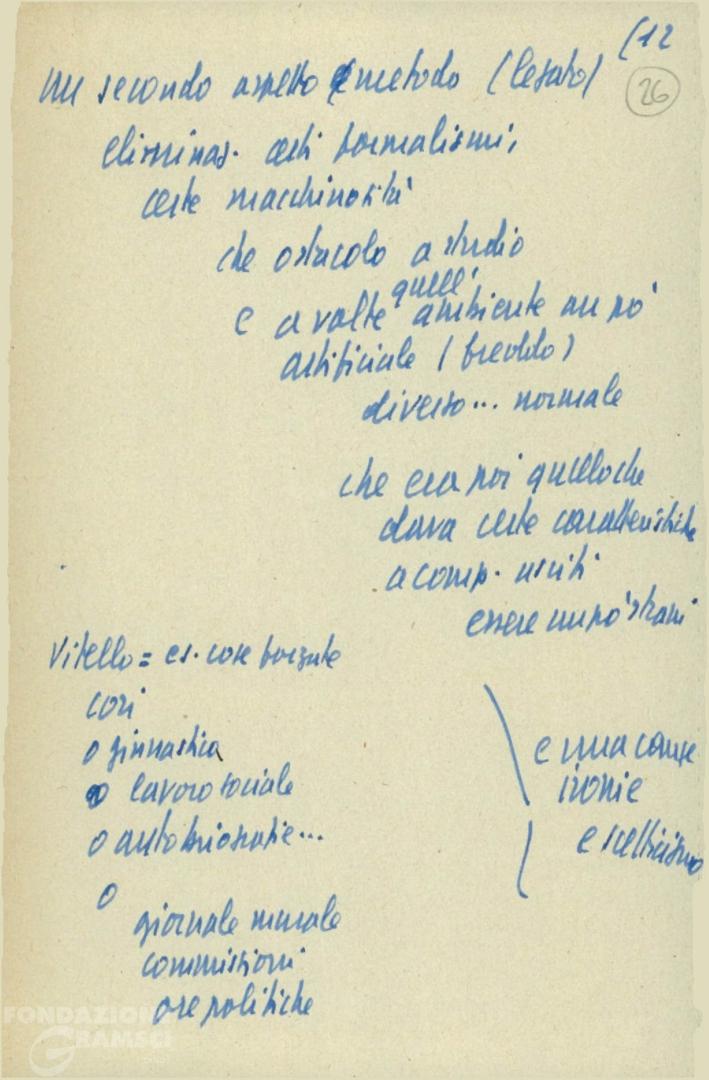 (12
26
un secondo aspetto è metodo (legato)
eliminaz. certi formalismi,
certe macchinosità
che ostacolo a studio
e a volte quell' ambiente un po'
artificiale (freddo)
diverso... normale
che era poi quello che
dava certe caratteristiche
a comp. usciti
essere un po' strani
Vitello = es. cose forzate
cori
o ginnastica
o lavoro sociale
o autobiografie...
o
giornale murale
commissioni
ore politiche
e una cause
ironie
e scetticismo
FONDAZIONE
GRAMSCI